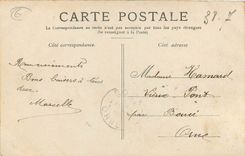 CARTE POSTALE
La Correspondance au recto n'est pas acceptée par tous les pays étrangers
(Se renseigner à la Poste)
Côté correspondance.
Côté adresse.
Remerciements
Bons baisers à tous
deux.
Marcelle
Madame Hamard
Pont
par
Orne